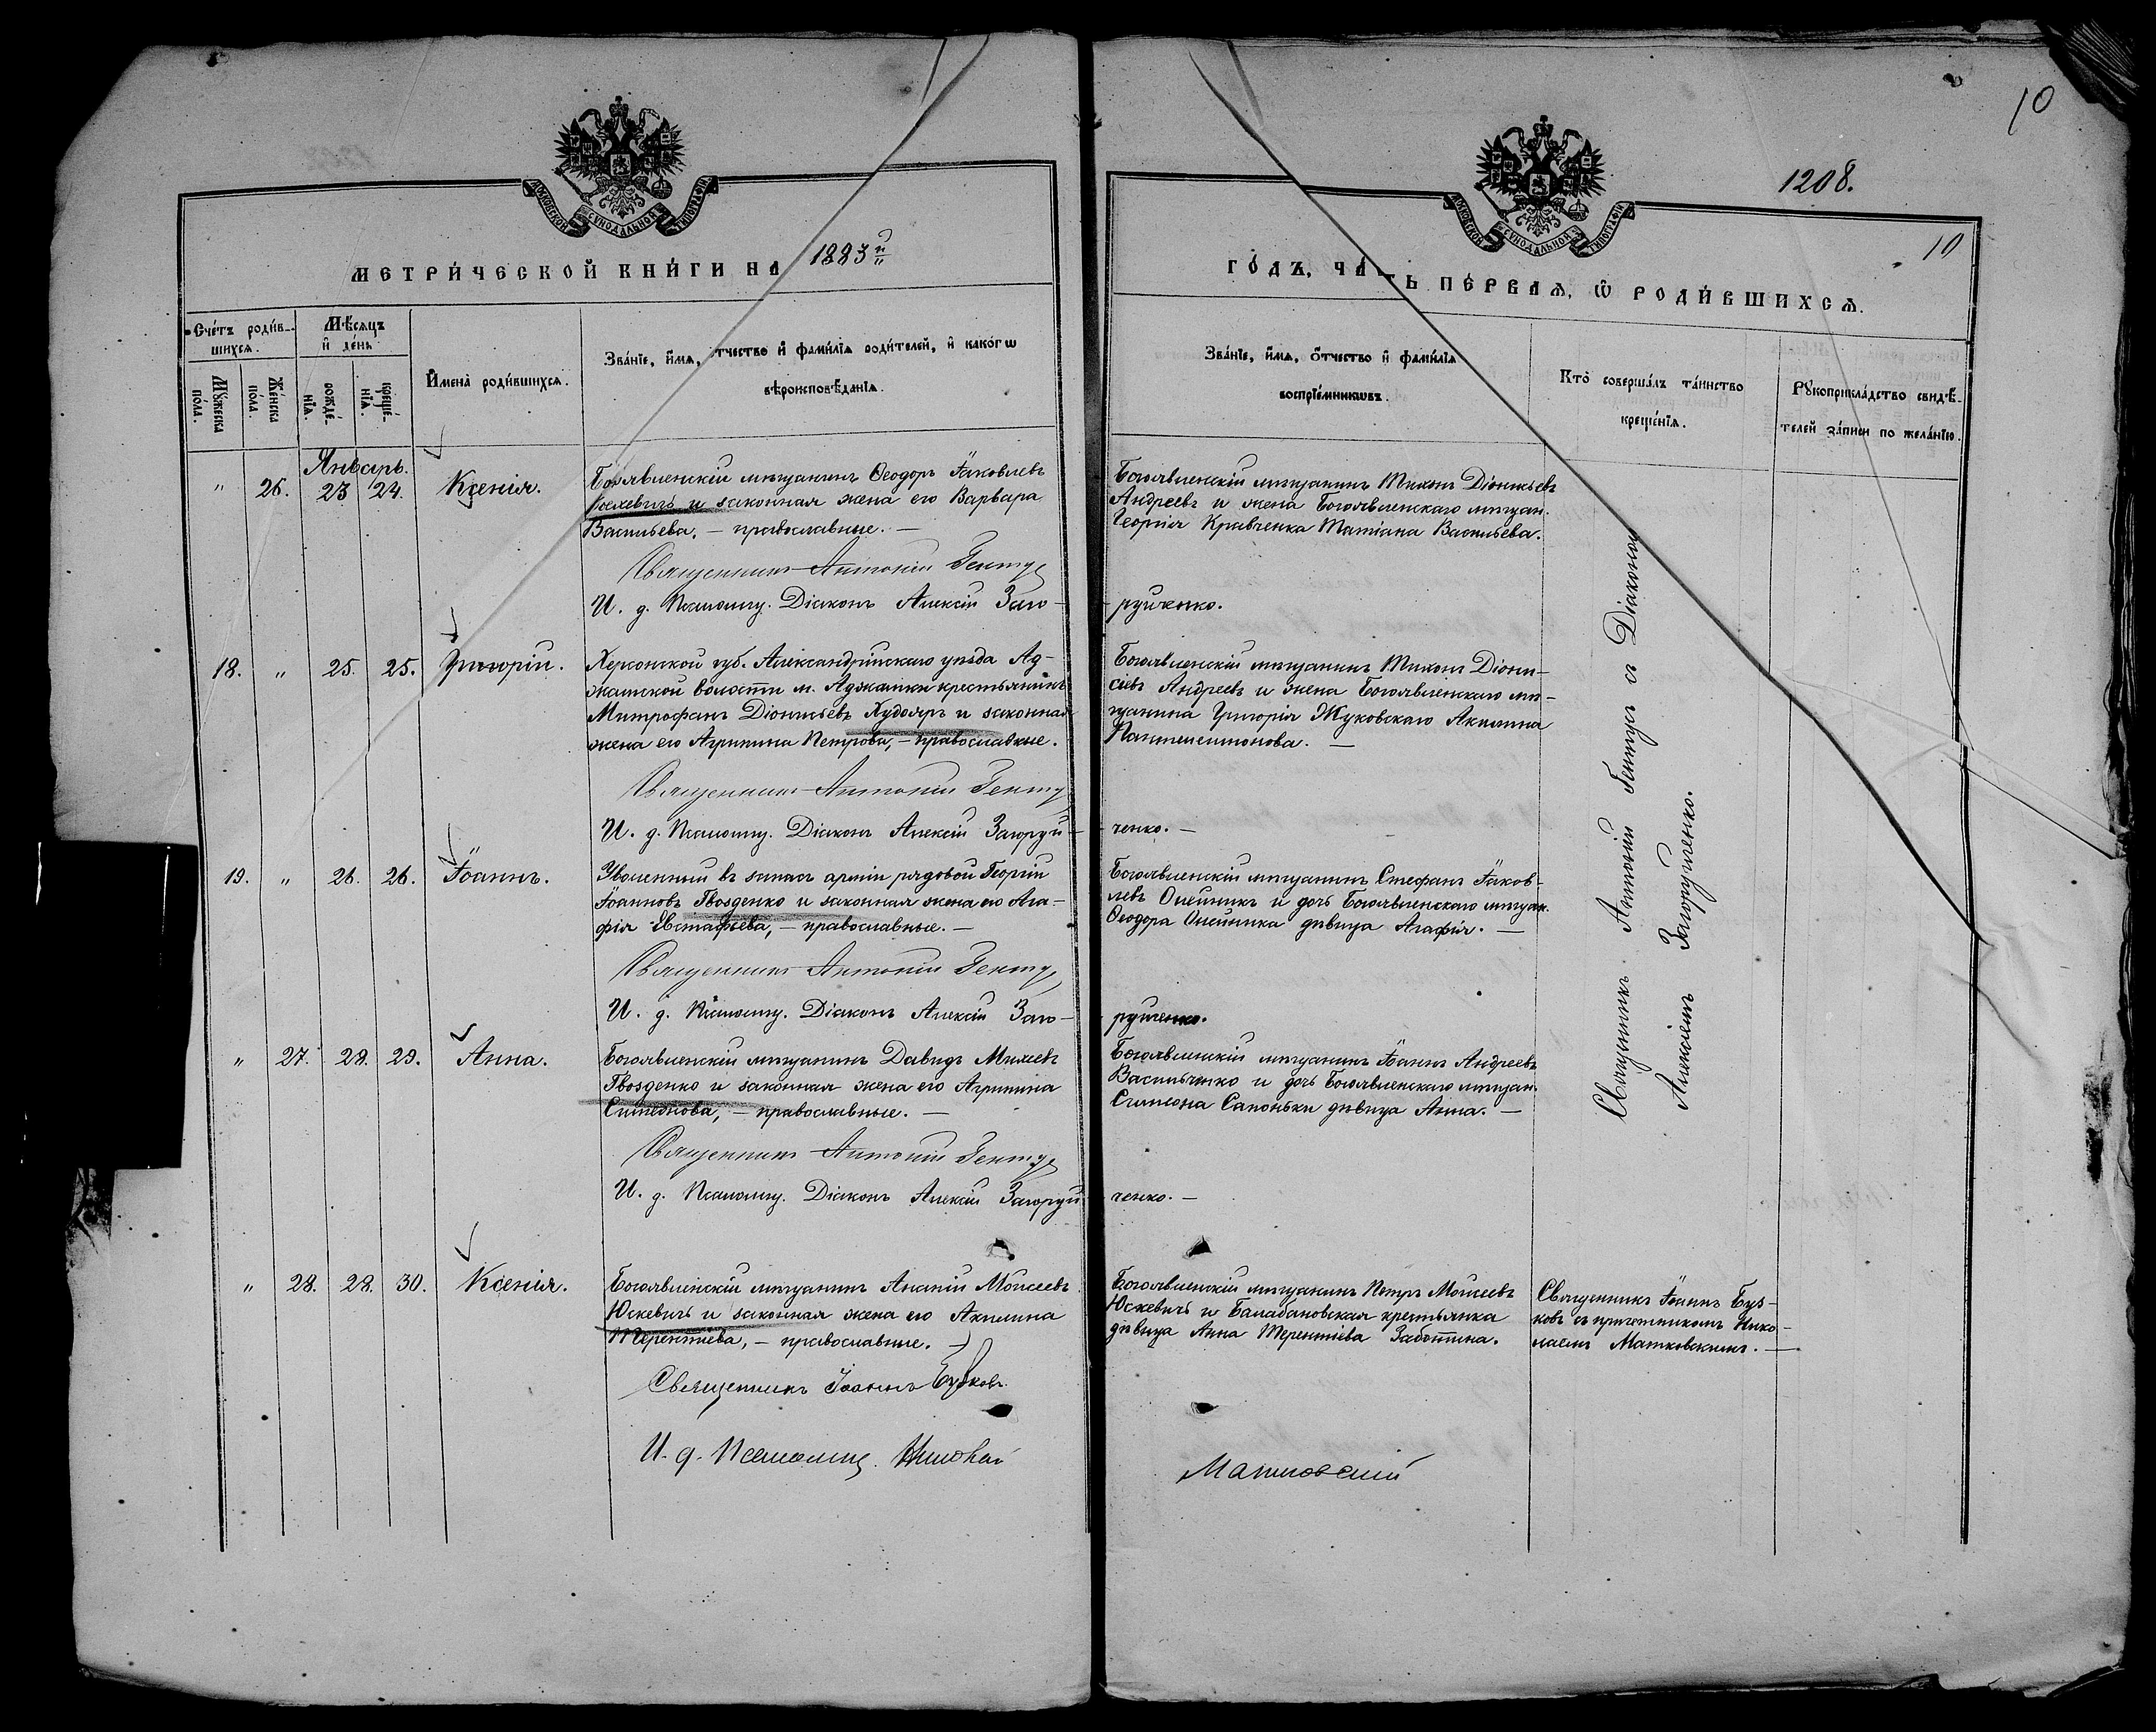 10
1208.
10
МОСКОВСКОЙ СѴНОДАЛЬНОЙ ТИПОГРАФІИ
МОСКОВСКОЙ СѴНОДАЛЬНОЙ ТИПОГРАФІИ
МЕТРИ́ЧЕСКОЙ КНИ́ГИ НА 1883й
ГО́ДЪ, ЧА Ь ПЕ́РВАѦ, Ѡ҆ РОДИ́ВШИХСѦ.
Сче́тъ роди́в-
шихсѧ.
Мѣ́сѧцъ
и҆ де́нь
Мꙋ́жеска
по́ла.
Же́нска
по́ла.
рожде́-
нїѧ.
креще́-
нїѧ.
И҆мена̀ роди́вшихсѧ.
Зва́нїе, и҆́мѧ, ѻ҆́тчество и҆ фами́лїѧ роди́телей, и҆ како́гѡ
вѣроисповѣ́данїѧ.
Зва́нїе, и҆́мѧ, ѻ҆́тчество и҆ фами́лїѧ
воспрїе́мникѡвъ.
Кто̀ соверша́лъ та́инство
креще́нїѧ.
Рꙋкоприкла́дство свидѣ́-
телей за́писи по жела́нїю.
Январь.
" 26. 23 24. Ксенія.
Богоявленскій мѣщанинъ Ѳеодоръ Іаковлевъ
и законная жена его Варвара
Васильева, — православные. —
Священникъ Антоній Генту
И. д. Псаломщ. Діаконъ Алексій Заго-
Богоявленскій мѣщанинъ Тихонъ Діонисьевъ
Андреевъ и жена Богоявленскаго мѣщан.
Георгія Кравченка Татіана Васильева.
руйченко.
18. " 25. 25. Григорій.
Херсонской губ. Александрійскаго уѣзда Ад-
жамской волости м. Аджамки крестьянинъ
Митрофанъ Діонисьевъ Худояръ и законная
жена его Агрипина Петрова, — православные.
Священникъ Антоній Генту
И. д. Псаломщ. Діаконъ Алексій Загоруй-
Богоявленскій мѣщанинъ Тихонъ Діони-
сіевъ Андреевъ и жена Богоявленскаго мѣ-
щанина Григорія Жуковскаго Акилина
Пантелеимонова. —
ченко. —
19. " 26. 26. Іоаннъ.
Уволенный въ запасъ арміи рядовой Георгій
Іоанновъ Гвозденко и законная жена его Ага-
фія Евстафьева, — православные. —
Священникъ Антоній Генту
И. д. Псаломщ. Діаконъ Алексій Заго-
Богоявленскій мѣщанинъ Стефанъ Іаков-
левъ Олейникъ и дочь Богоявленскаго мѣщан.
Ѳеодора Олейника дѣвица Агафія. —
руйченко.
" 27. 28. 29. Анна.
Богоявленскій мѣщанинъ Давидъ Михеевъ
Гвозденко и законная жена его Агрипина
Симеонова, — православные. —
Священникъ Антоній Генту
И. д. Псаломщ. Діаконъ Алексій Загоруй
Богоявленскій мѣщанинъ Іоаннъ Андреевъ
Васильченко и дочь Богоявленскаго мѣщан.
Симеона Сапоньки дѣвица Анна. —
ченко. —
Священникъ Антоній Гентусъ съ Діакономъ
Алексіемъ Загоруйченко.
" 28. 28. 30. Ксенія.
Богоявленскій мѣщанинъ Ананій Моисеевъ
Юскевичъ и законная жена его Акилина
Терентіева, — православные. —
Священникъ Іоаннъ Бужковъ.
И. д. Псаломщ. Николай
Богоявленскій мѣщанинъ Петръ Моисеевъ
Юскевичъ и Балабановская крестьянка
дѣвица Анна Терентіева Заботина.
Матковскій
Священникъ Іоаннъ Буж-
ковъ съ причетникомъ Нико-
лаемъ Матковскимъ. —